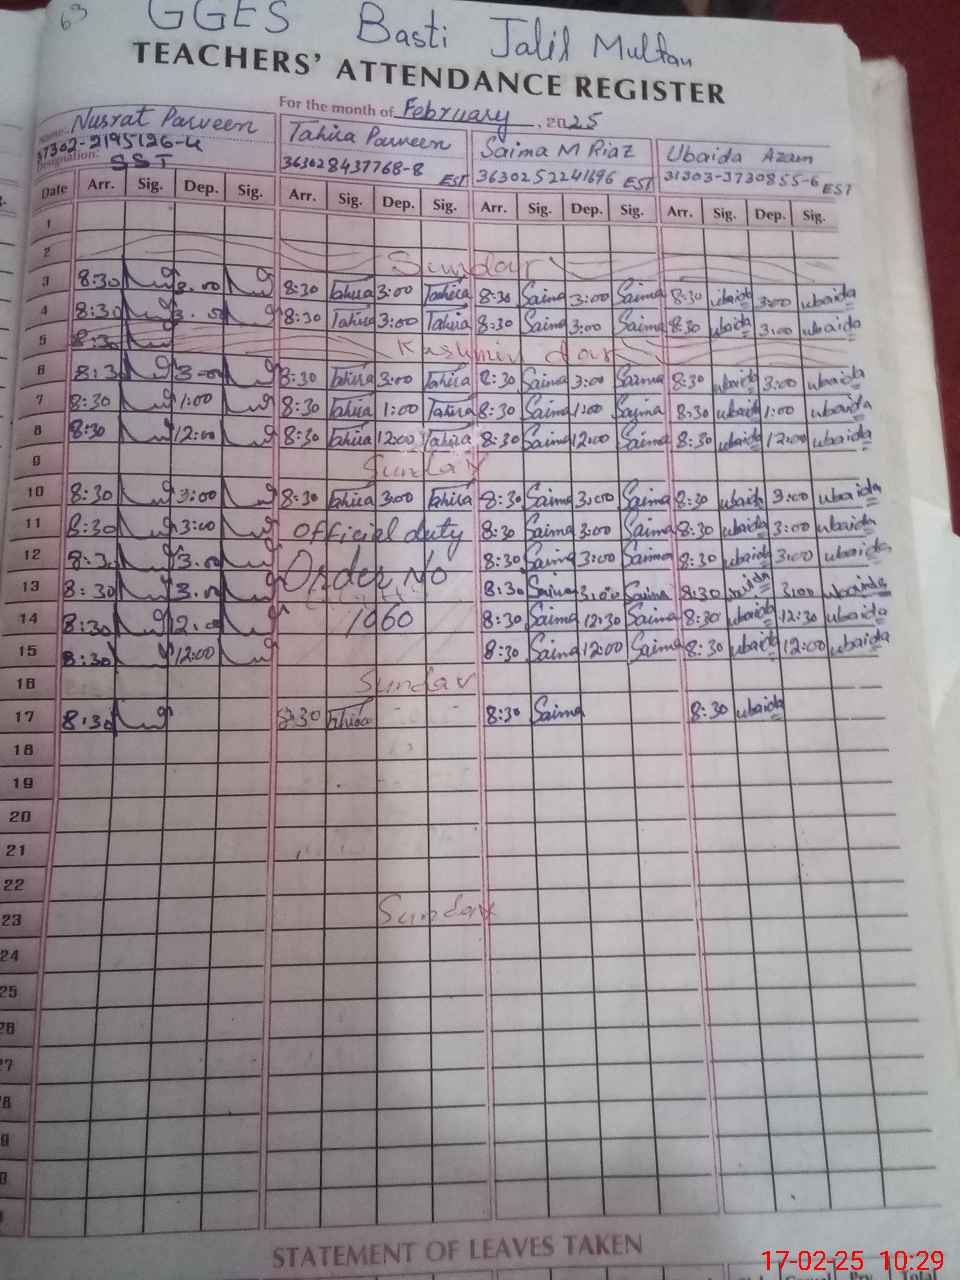 63
GGES Basti Jalil Multan
TEACHERS' ATTENDANCE REGISTER
For the month of February, 2025
Name: Nusrat Parveen Tahira Parveen Saima M Riaz Ubaida Azam
37302-2195126-4 363028437768-8 EST 3630252241696 EST 31303-3730855-6 EST
Designation: SST
Date Arr. Sig. Dep. Sig. Arr. Sig. Dep. Sig. Arr. Sig. Dep. Sig. Arr. Sig. Dep. Sig.
1
2 Sunday
3 8:30 3.00 8:30 Tahira 3:00 Tahira 8:30 Saima 3:00 Saima 8:30 ubaida 3:00 ubaida
4 8:30 3.00 8:30 Tahira 3:00 Tahira 8:30 Saima 3:00 Saima 8:30 ubaida 3:00 ubaida
5 8:30 Kashmir day
6 8:30 3:00 8:30 Tahira 3:00 Tahira 8:30 Saima 3:00 Saima 8:30 ubaida 3:00 ubaida
7 8:30 1:00 8:30 Tahira 1:00 Tahira 8:30 Saima 1:00 Saima 8:30 ubaida 1:00 ubaida
8 8:30 12:00 8:30 Tahira 12:00 Tahira 8:30 Saima 12:00 Saima 8:30 ubaida 12:00 ubaida
9 Sunday
10 8:30 3:00 8:30 Tahira 3:00 Tahira 8:30 Saima 3:00 Saima 8:30 ubaida 3:00 ubaida
11 8:30 3:00 Official duty 8:30 Saima 3:00 Saima 8:30 ubaida 3:00 ubaida
12 8:30 3.00 Order No 8:30 Saima 3:00 Saima 8:30 ubaida 3:00 ubaida
13 8:30 3.00 8:30 Saima 3:00 Saima 8:30 ubaida 3:00 ubaida
14 8:30 1060 8:30 Saima 12:30 Saima 8:30 ubaida 12:30 ubaida
15 8:30 12:00 8:30 Saima 12:00 Saima 8:30 ubaida 12:00 ubaida
16 Sunday
17 8:30 8:30 Tahira 8:30 Saima 8:30 ubaida
18
19
20
21
22
23 Sunday
24
25
STATEMENT OF LEAVES TAKEN
17-02-25 10:29
Total